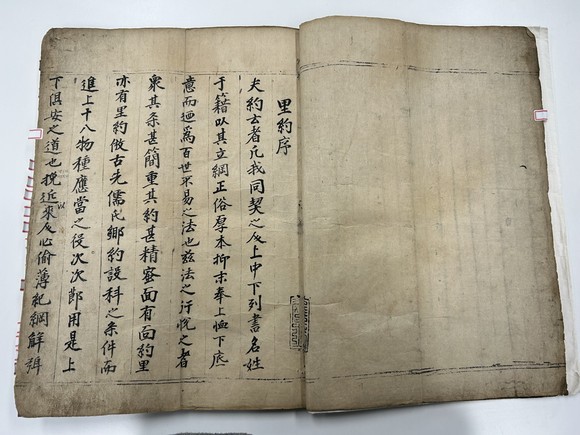 里約序
夫約玄者凡我同契之友上中下列書名姓
于籍以其立綱正俗厚本抑末奉上恤下底
意而迺爲百世不易之法也玆法之行悅之者
衆其条甚簡重其約甚精密面有面約里
亦有里約倣古先儒氏鄕約設科之条件而
進上十八物種應當之役次次郞用是上
下俱安之道也挽近以來反心偷薄紀綱解弛